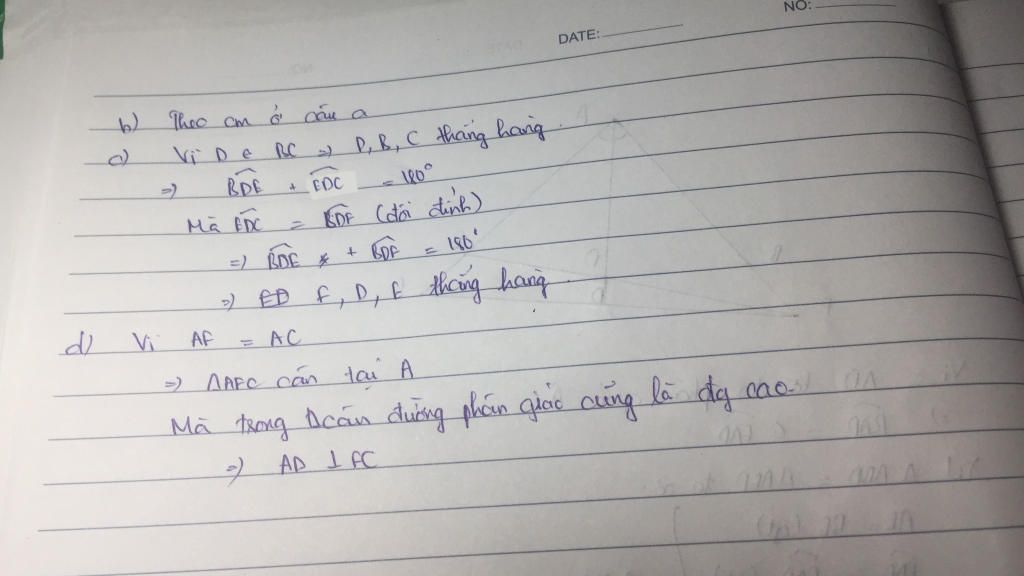 NO:
DATE:
b) Theo cm ở câu a
c) Vì D ∈ BC => D, B, C thẳng hàng.
=> BDE + EDC = 180°
Mà EDC = BDF (đối đỉnh)
=> BDE + BDF = 180°
=> F, D, E thẳng hàng.
d) Vì AF = AC
=> ΔAFC cân tại A
Mà trong Δcân đường phân giác cũng là đg cao.
=> AD ⊥ FC